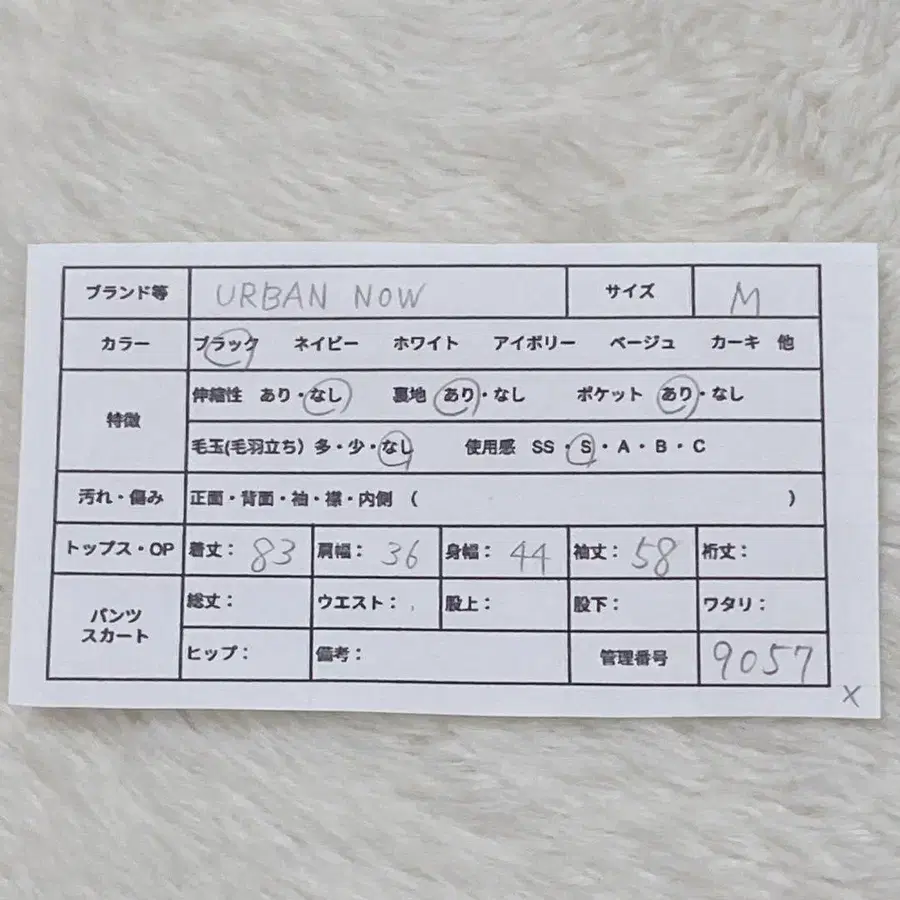 ブランド等 URBAN NOW サイズ M
カラー ブラック ネイビー ホワイト アイボリー ベージュ カーキ 他
特徴
伸縮性 あり・なし 裏地 あり・なし ポケット あり・なし
毛玉(毛羽立ち) 多・少・なし 使用感 SS・S・A・B・C
汚れ・傷み 正面・背面・袖・襟・内側 ( )
トップス・OP 着丈: 83 肩幅: 36 身幅: 44 袖丈: 58 裄丈:
パンツ
スカート
総丈: ウエスト: 股上: 股下: ワタリ:
ヒップ: 備考: 管理番号 9057
x